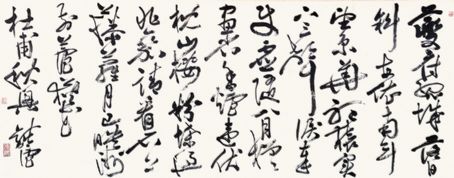 夔府孤城落日
斜每依南斗
望京華聽猿實
下三聲淚奉
使虛隨八月槎
畫省香爐違伏
枕山樓粉堞隱
悲笳請看石上
藤蘿月已映洲
前蘆荻花
杜甫秋興